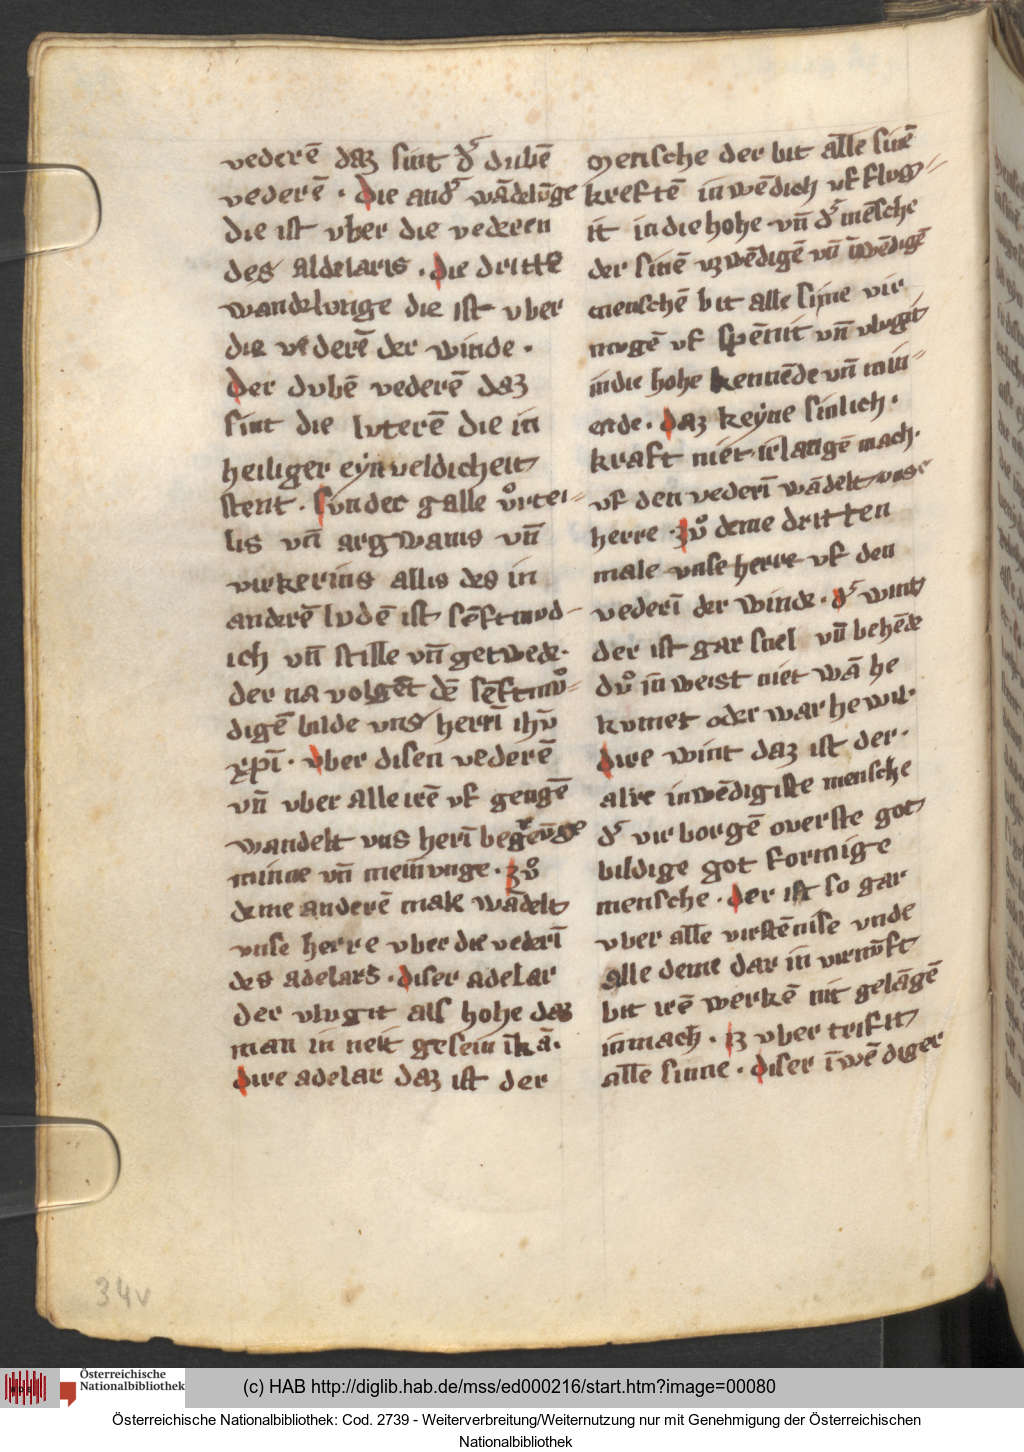 vederē daz sint d̓ dubē
vederē · die and̓ wādelūge
die ist vber die vederen
des aldelaris · die dritte
wandelunge die ist vber
die vederē der winde ·
Der dvbē vederē daz
sint die lvterē die in
heiliger eynveldicheit
stent · sunder galle vͦrtei-
lis vn̄ argwanis vn̄
virkerins allis des in
anderē ludē ist sēftmvd-
ich vn̄ stille vn̄ getwede·
der na volget dē sēftmvͦ-
digē bilde vns herrī ihū
xpī · vber disen vederē
vn̄ vber alle irē vf gengē
wandelt vns herī begerūge
minne vn̄ meinvnge · zvͦ
deme anderē male wādelt
vnse herre vber die vederī
des adelars · diser adelar
der vlvgit als hohe daz
man in neit gesein īkā·
Dire adelar daz ist der
mensche der bit alle sinē
kreftē inwēdich vf flvg-
it in die hohe · vn̄ d̓ mēsche
der sinē vzwēdigē vn̄ īwēdigē
menschē bit alle sime vir
mvgē vf spēnit vn̄ vlvgit
in die hohe kennēde vn̄ min-
ende · daz keyne sinlich·
kraft niet irlangē mach·
vf den vederī wādelt vnse
herre · zvͦ deme dritten
male vnse herre vf den
vederī der winde · d̓ wint
der ist gar snel vn̄ behēde
dvͦ in weist niet wā he
kvmet oder war he wil·
Dire wint daz ist der·
alre inwēdigiste mensche
d̓ virborgē overste got
bildige got formige
mensche · der ist so gar
vber alle virstēnise vnde
alle deme dar in virnvft
bit irē werkē nit gelāgē
inmach · iz vber trifit
alle sinne · diser īwēdiger
34v
Österreichische
Nationalbibliothek
(c) HAB http://diglib.hab.de/mss/ed000216/start.htm?image=00080
Österreichische Nationalbibliothek: Cod. 2739 - Weiterverbreitung/Weiternutzung nur mit Genehmigung der Österreichischen
Nationalbibliothek